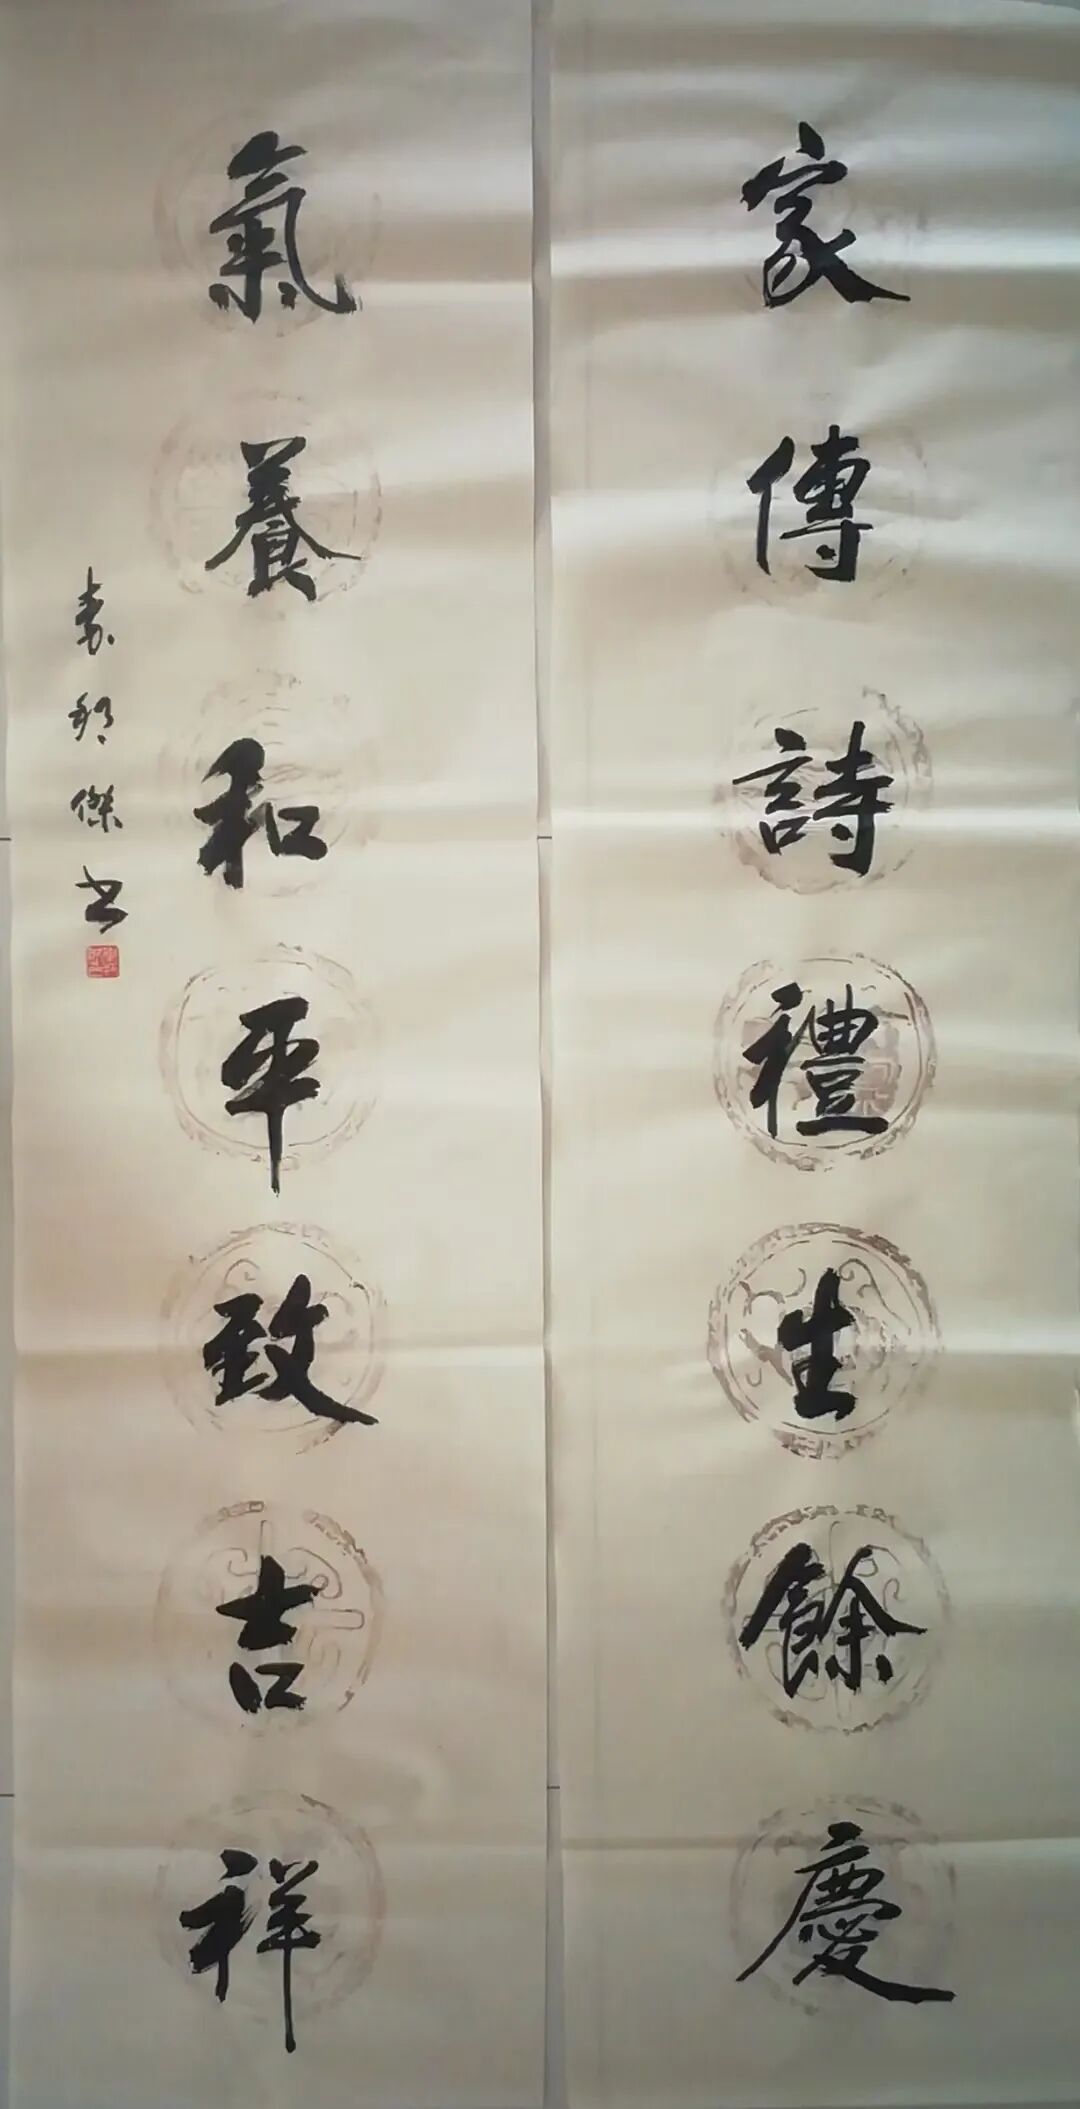 家傳詩禮生餘慶
氣養和平致吉祥
袁邦傑书